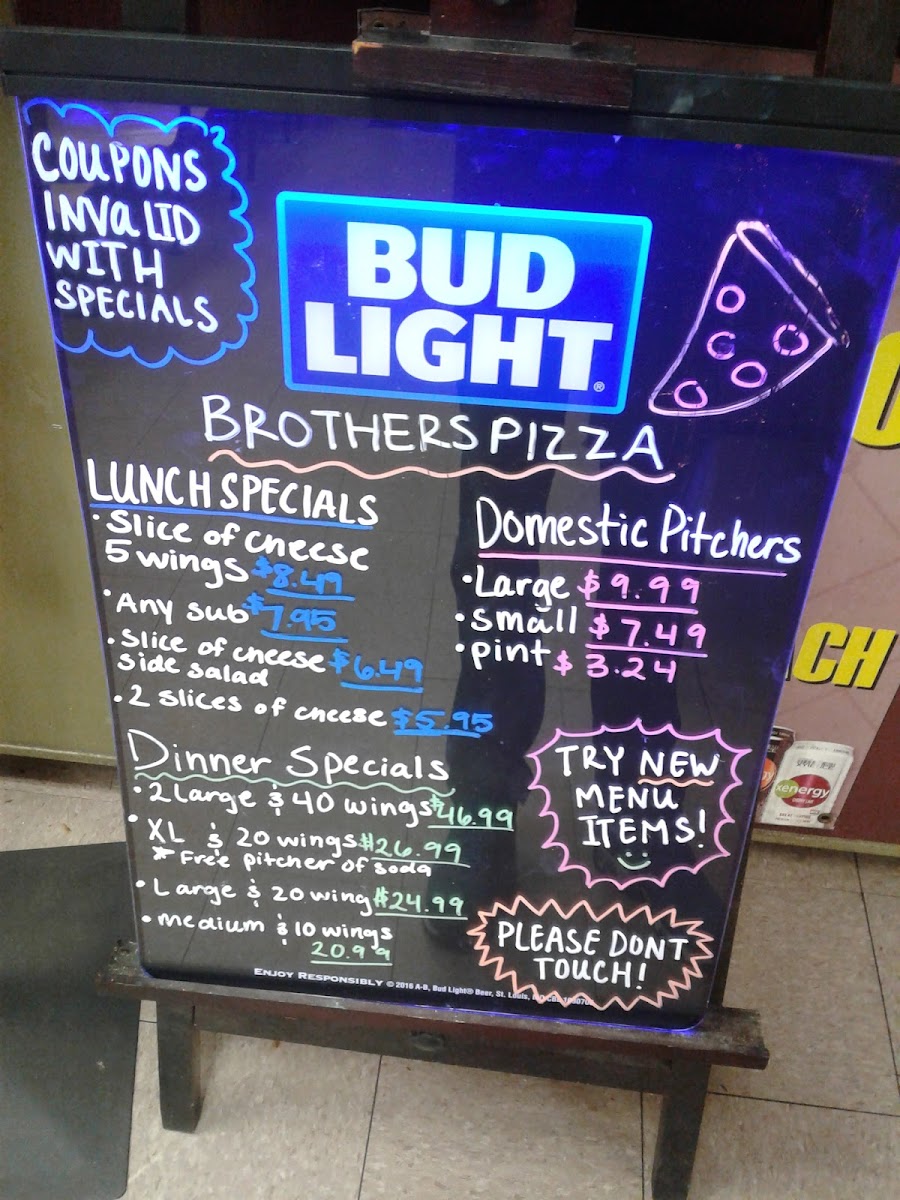 COUPONS
INVALID
WITH
SPECIALS
BUD
LIGHT®
BROTHERS PIZZA
LUNCH SPECIALS
• Slice of cheese
5 wings $8.49
• Any sub $7.95
• Slice of cheese $6.49
side salad
• 2 slices of cheese $5.95
Domestic Pitchers
• Large $9.99
• small $7.49
• pint $3.24
Dinner Specials
• 2 Large & 40 wings $46.99
• XL & 20 wings $26.99
* Free pitcher of soda
• Large & 20 wing $24.99
• medium & 10 wings
20.99
TRY NEW
MENU
ITEMS!
PLEASE DONT
TOUCH!
ENJOY RESPONSIBLY © 2016 A-B, Bud Light® Beer, St. Louis,
CH
xenergy